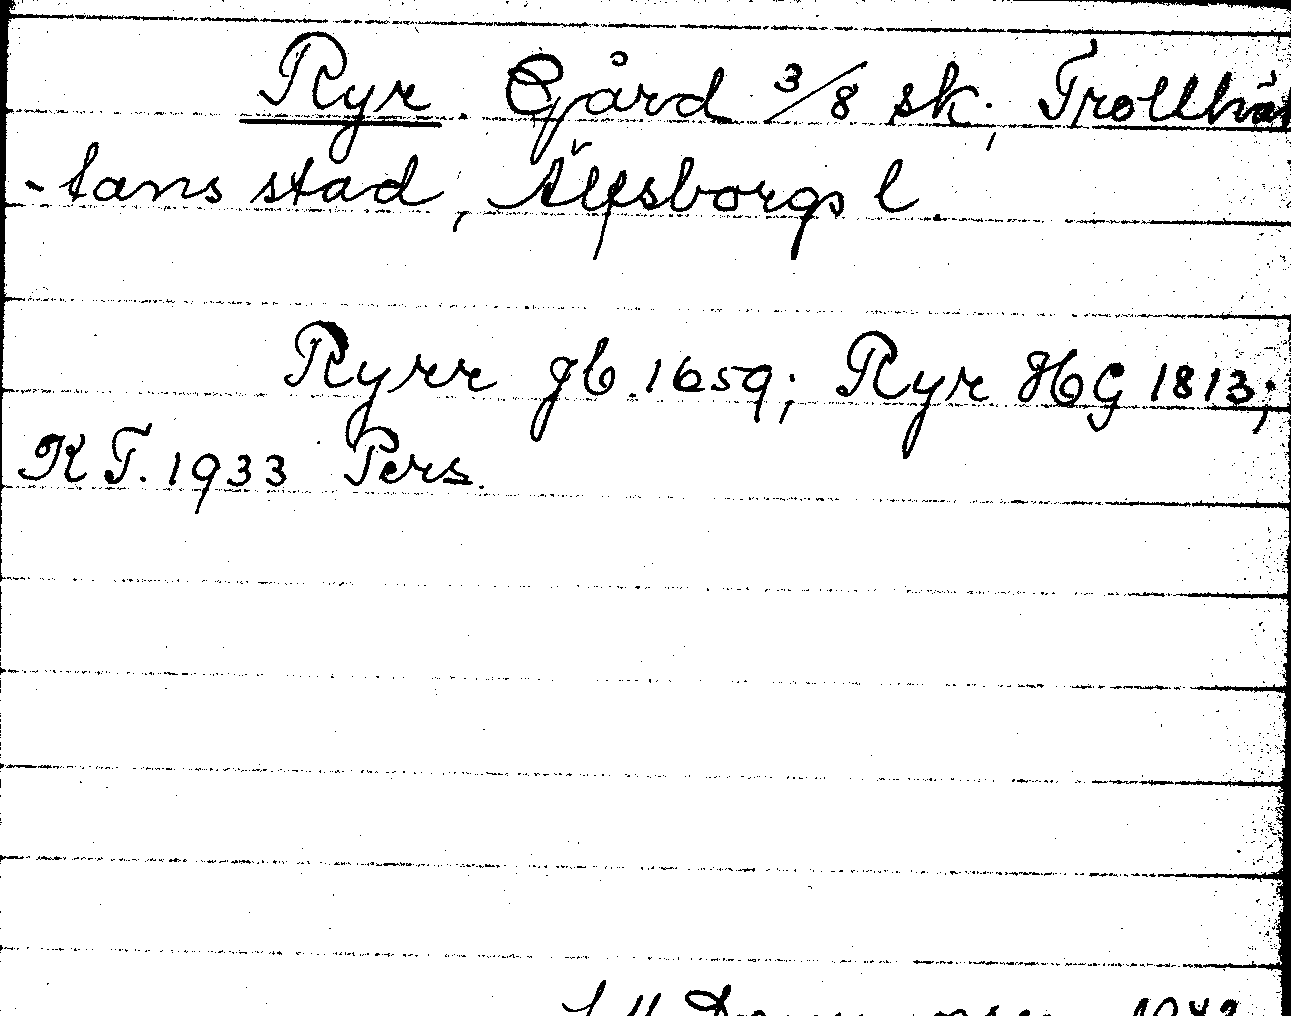 Ryr. Gård 3/8 sk., Trollhät
-tans stad, Älfsborgs l.
Ryrr gb. 1659; Ryr HG 1813;
KT. 1933 Pers.